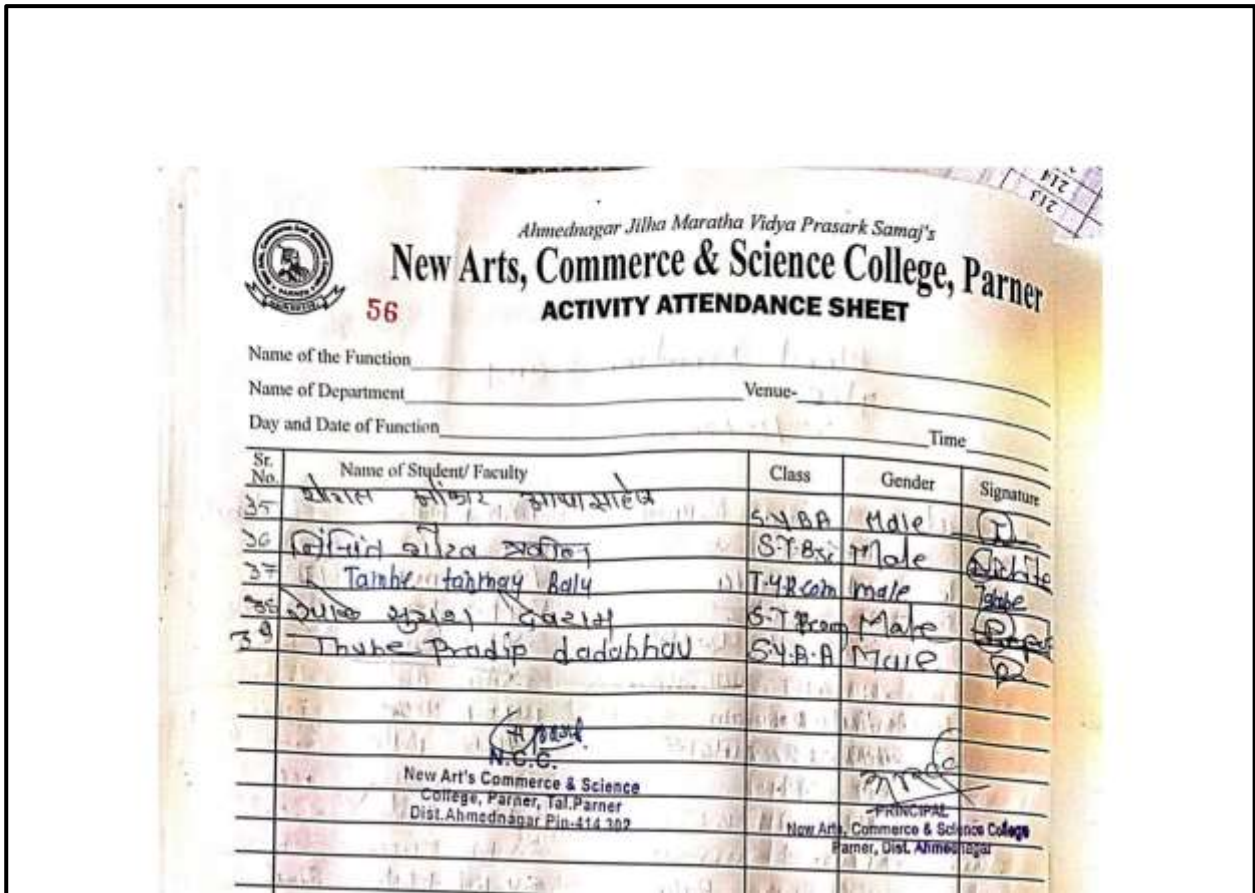 213
214
Ahmednagar Jilha Maratha Vidya Prasark Samaj's
New Arts, Commerce & Science College, Parner
56 ACTIVITY ATTENDANCE SHEET
Name of the Function
Name of Department Venue-
Day and Date of Function Time
Sr. No. Name of Student/ Faculty Class Gender Signature
35 S.Y.BA Male
36 S.Y.Bsc Male
37 Tambe tanmay Balu T.Y.Bcom male Tambe
38 Male
39 Thube Pradip dadabhau S.Y.B.A Male
N.C.C.
New Art's Commerce & Science
College, Parner, Tal.Parner
Dist.Ahmednagar Pin-414 302
PRINCIPAL
New Arts, Commerce & Science College
Parner, Dist. Ahmednagar